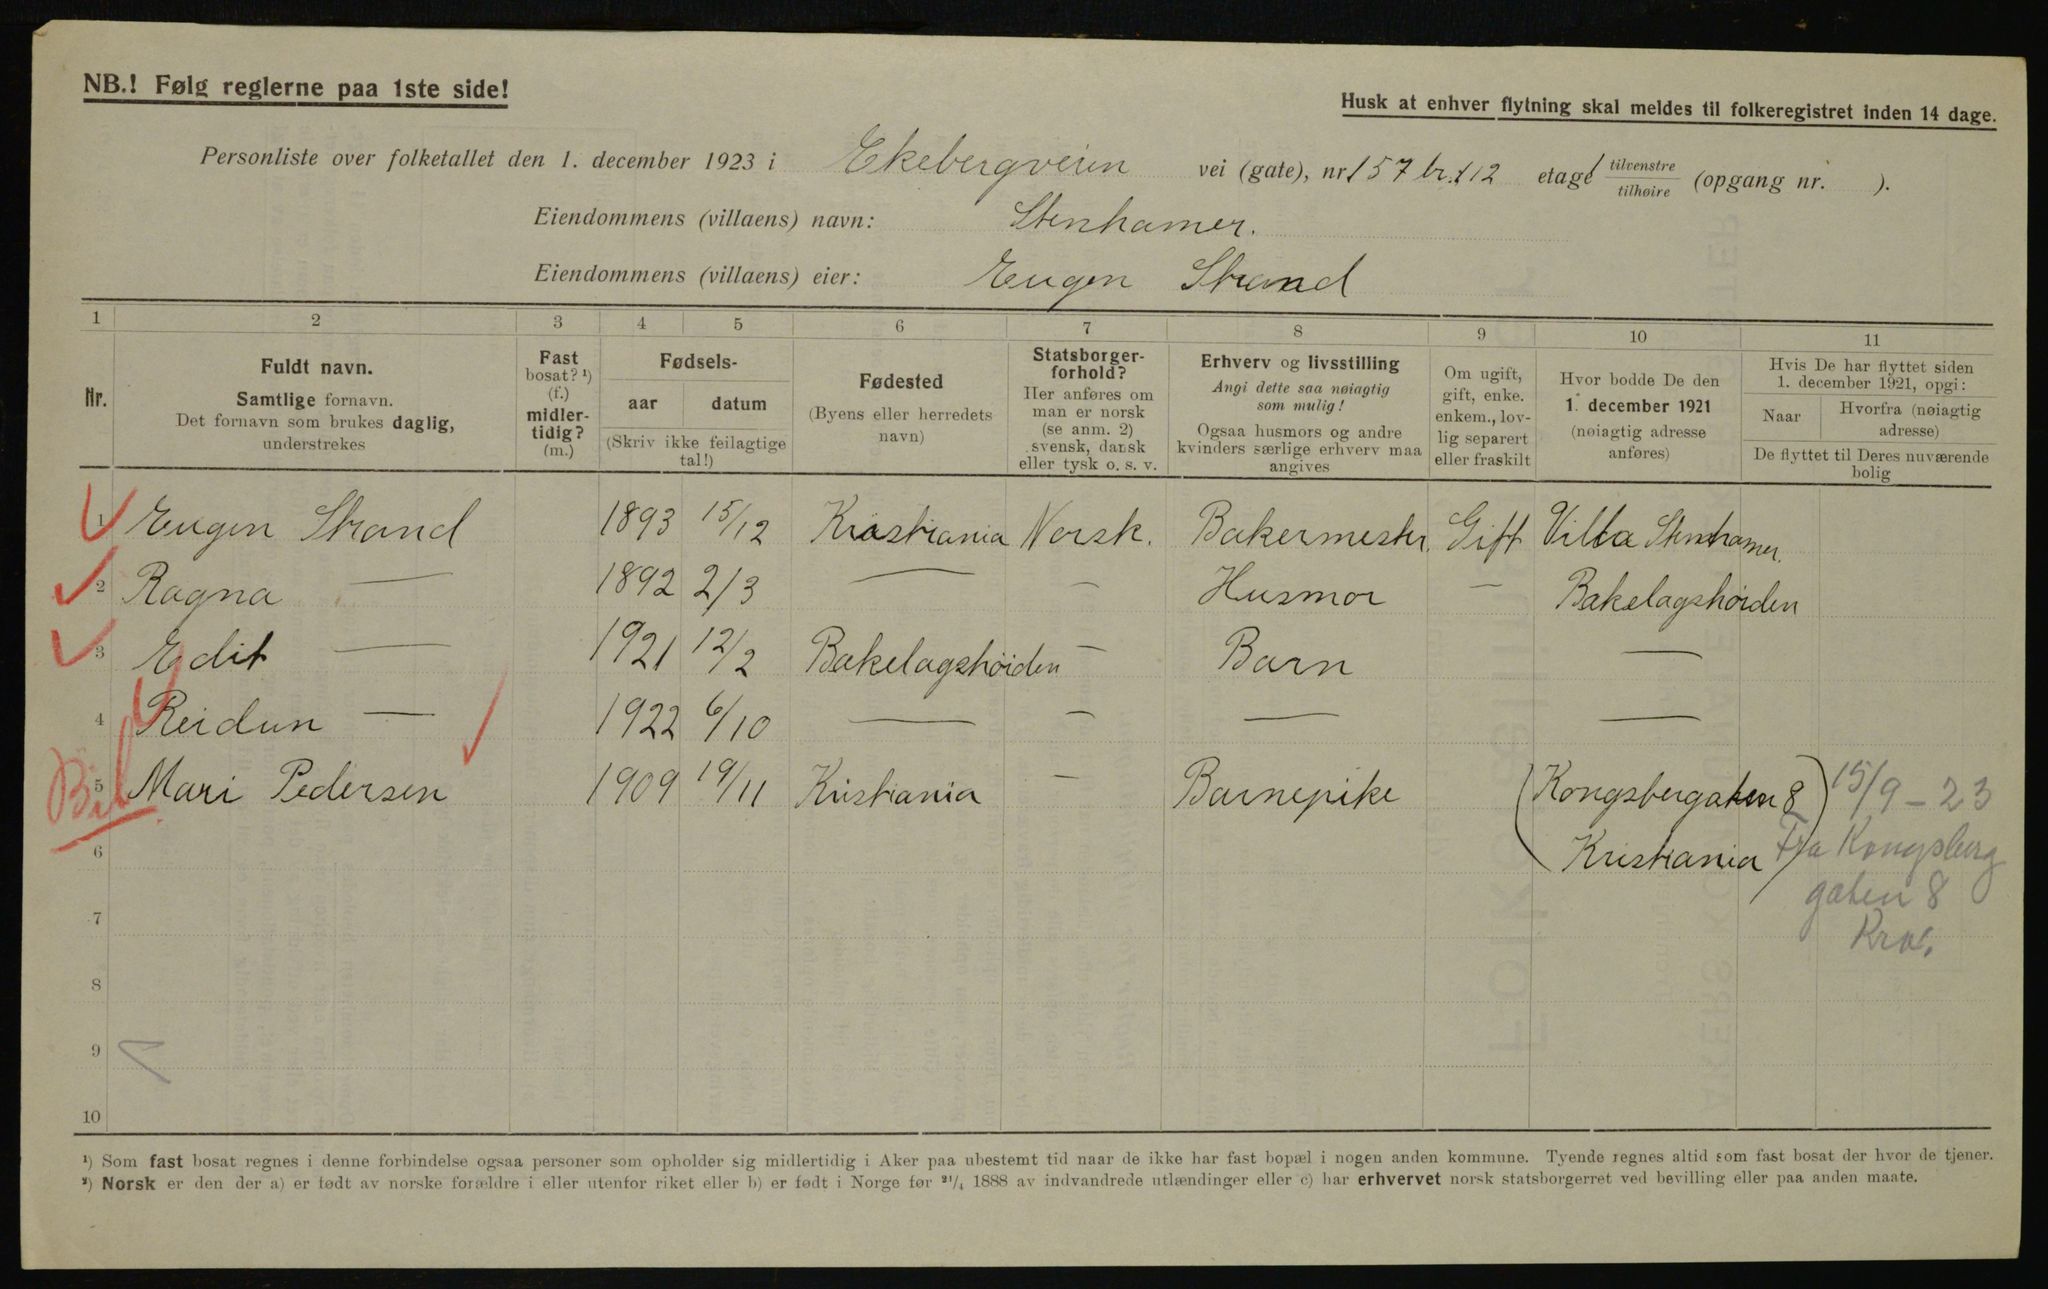 NB.! Følg reglerne paa 1ste side!
Husk at enhver flytning skal meldes til folkeregistret inden 14 dage.
Personliste over folketallet den 1. december 1923 i Ekebergveien vei (gate), nr. 157 br. 112 etage 1 tilvenstre / tilhøire (opgang nr. ).
Eiendommens (villaens) navn: Stenhamer.
Eiendommens (villaens) eier: Eugen Strand
1 2 3 4 5 6 7 8 9 10 11
Nr.
Fuldt navn.
Samtlige fornavn.
Det fornavn som brukes daglig,
understrekes
Fast
bosat? ¹)
(f.)
midler-
tidig?
(m.)
Fødsels-
aar datum
(Skriv ikke feilagtige
tal!)
Fødested
(Byens eller herredets
navn)
Statsborger-
forhold?
Her anføres om
man er norsk
(se anm. 2)
svensk, dansk
eller tysk o. s. v.
Erhverv og livsstilling
Angi dette saa nøiagtig
som mulig!
Ogsaa husmors og andre
kvinders særlige erhverv maa
angives
Om ugift,
gift, enke.
enkem., lov-
lig separert
eller fraskilt
Hvor bodde De den
1. december 1921
(nøiagtig adresse
anføres)
Hvis De har flyttet siden
1. december 1921, opgi:
Naar
Hvorfra (nøiagtig
adresse)
De flyttet til Deres nuværende
bolig
1 Eugen Strand 1893 15/12 Kristiania Norsk. Bakermester. Gift Villa Stenhamer.
2 Ragna — 1892 2/3 — – Husmor – Bækelagshöiden
3 Edit — 1921 12/2 Bækelagshöiden – Barn —
4 Reidun — 1922 6/10 — – — —
5 Mari Pedersen 1909 19/11 Kristiania – Barnepike (Kongsbergaten 8) 15/9 – 23
6 Kristiania Fra Kongsberg
gaten 8
7 Kra.
8
9
10
¹) Som fast bosat regnes i denne forbindelse ogsaa personer som opholder sig midlertidig i Aker paa ubestemt tid naar de ikke har fast bopæl i nogen anden kommune. Tyende regnes altid som fast bosat der hvor de tjener.
²) Norsk er den der a) er født av norske forældre i eller utenfor riket eller b) er født i Norge før ²¹/₄ 1888 av indvandrede utlændinger eller c) har erhvervet norsk statsborgerret ved bevilling eller paa anden maate.